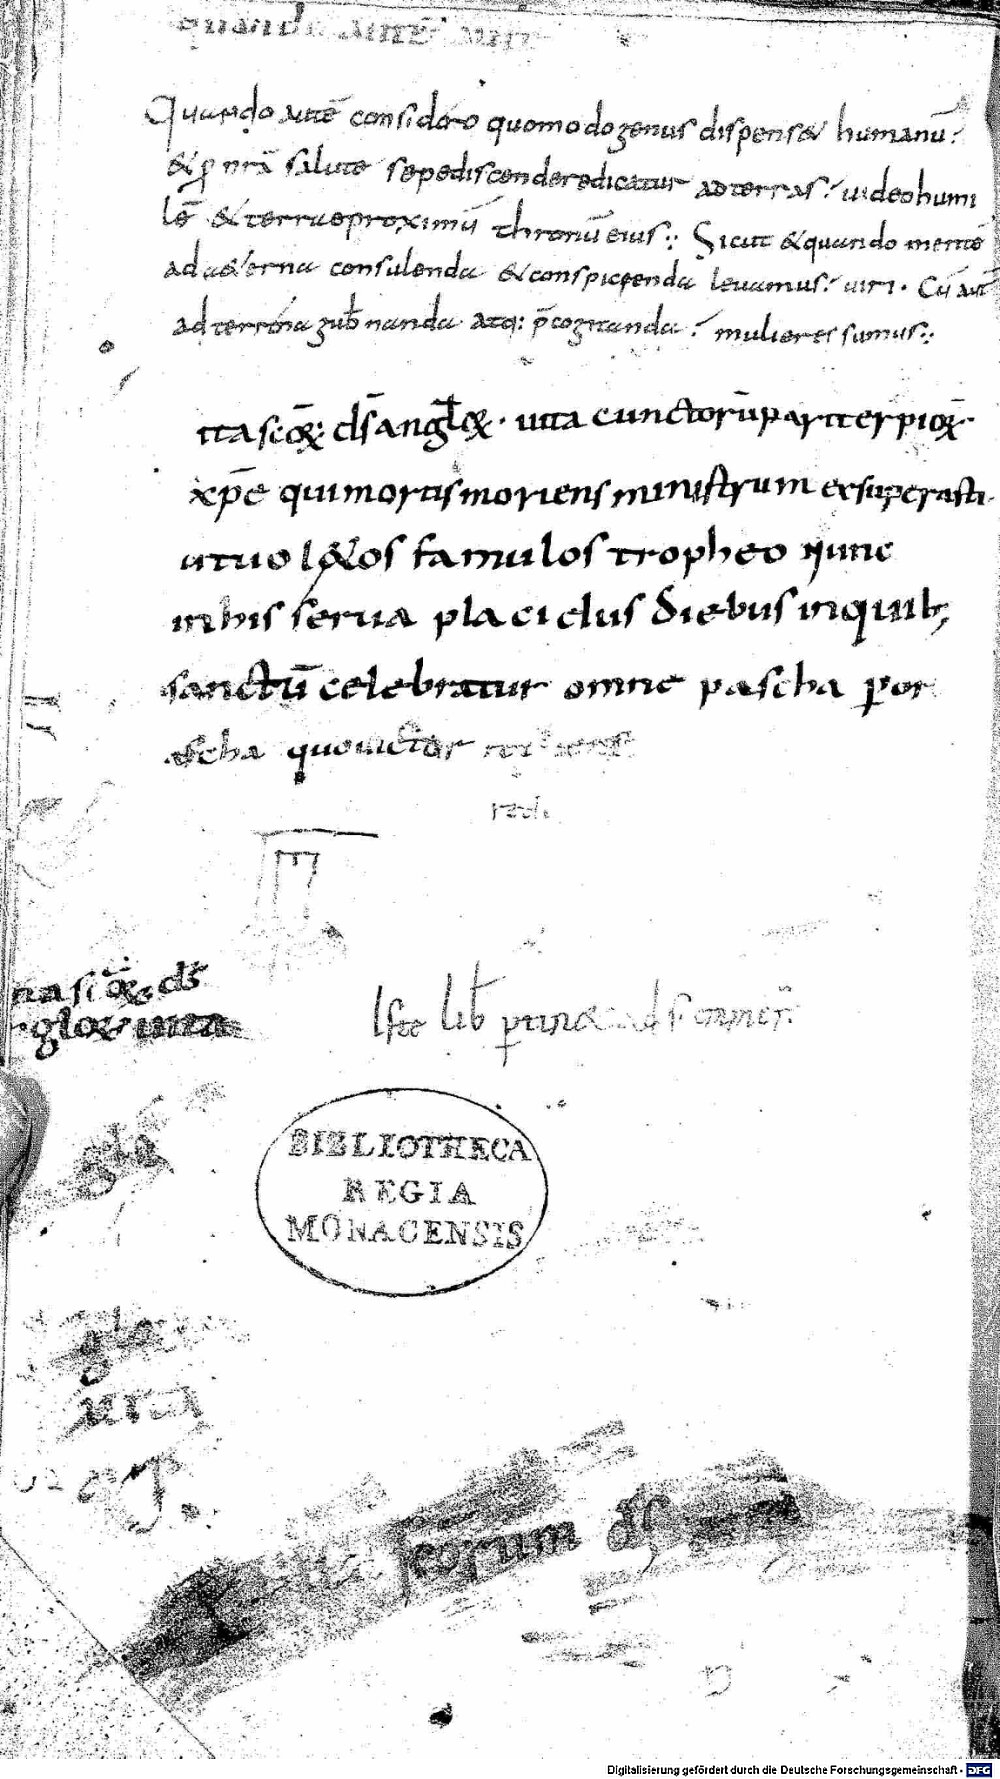 Quando autē considero quomodo genus dispens& humanū:
& ꝓ nrā salute sepe discendere dicatur ad terras: uideo humi
lē & terrae proximū thronū eius:: Sicut & quando mente
ad a&erna consulenda & conspicienda leuamus: uiri. Cū aut̄
ad terrena gub̄nanda atq: p̄cogitanda: mulieres sumus::
ita scōꝝ: ds̄ anglꝝ. uita cunctorū pariter pioꝝ.
xp̄e qui mortis moriens ministrum exsuperasti
utuo l&os famulos tropheo nunc
in his serua placidus diebus in quib;
sanctū celebratur omne pascha per
scha quo uictor
red
na scꝝ ds̄
gloꝝ uita
Iste lib̄ ptin& ad s. emmer̄.
gla
BIBLIOTHECA
REGIA
MONACENSIS
gla
uita
scorum ds̄
Digitalisierung gefördert durch die Deutsche Forschungsgemeinschaft - DFG